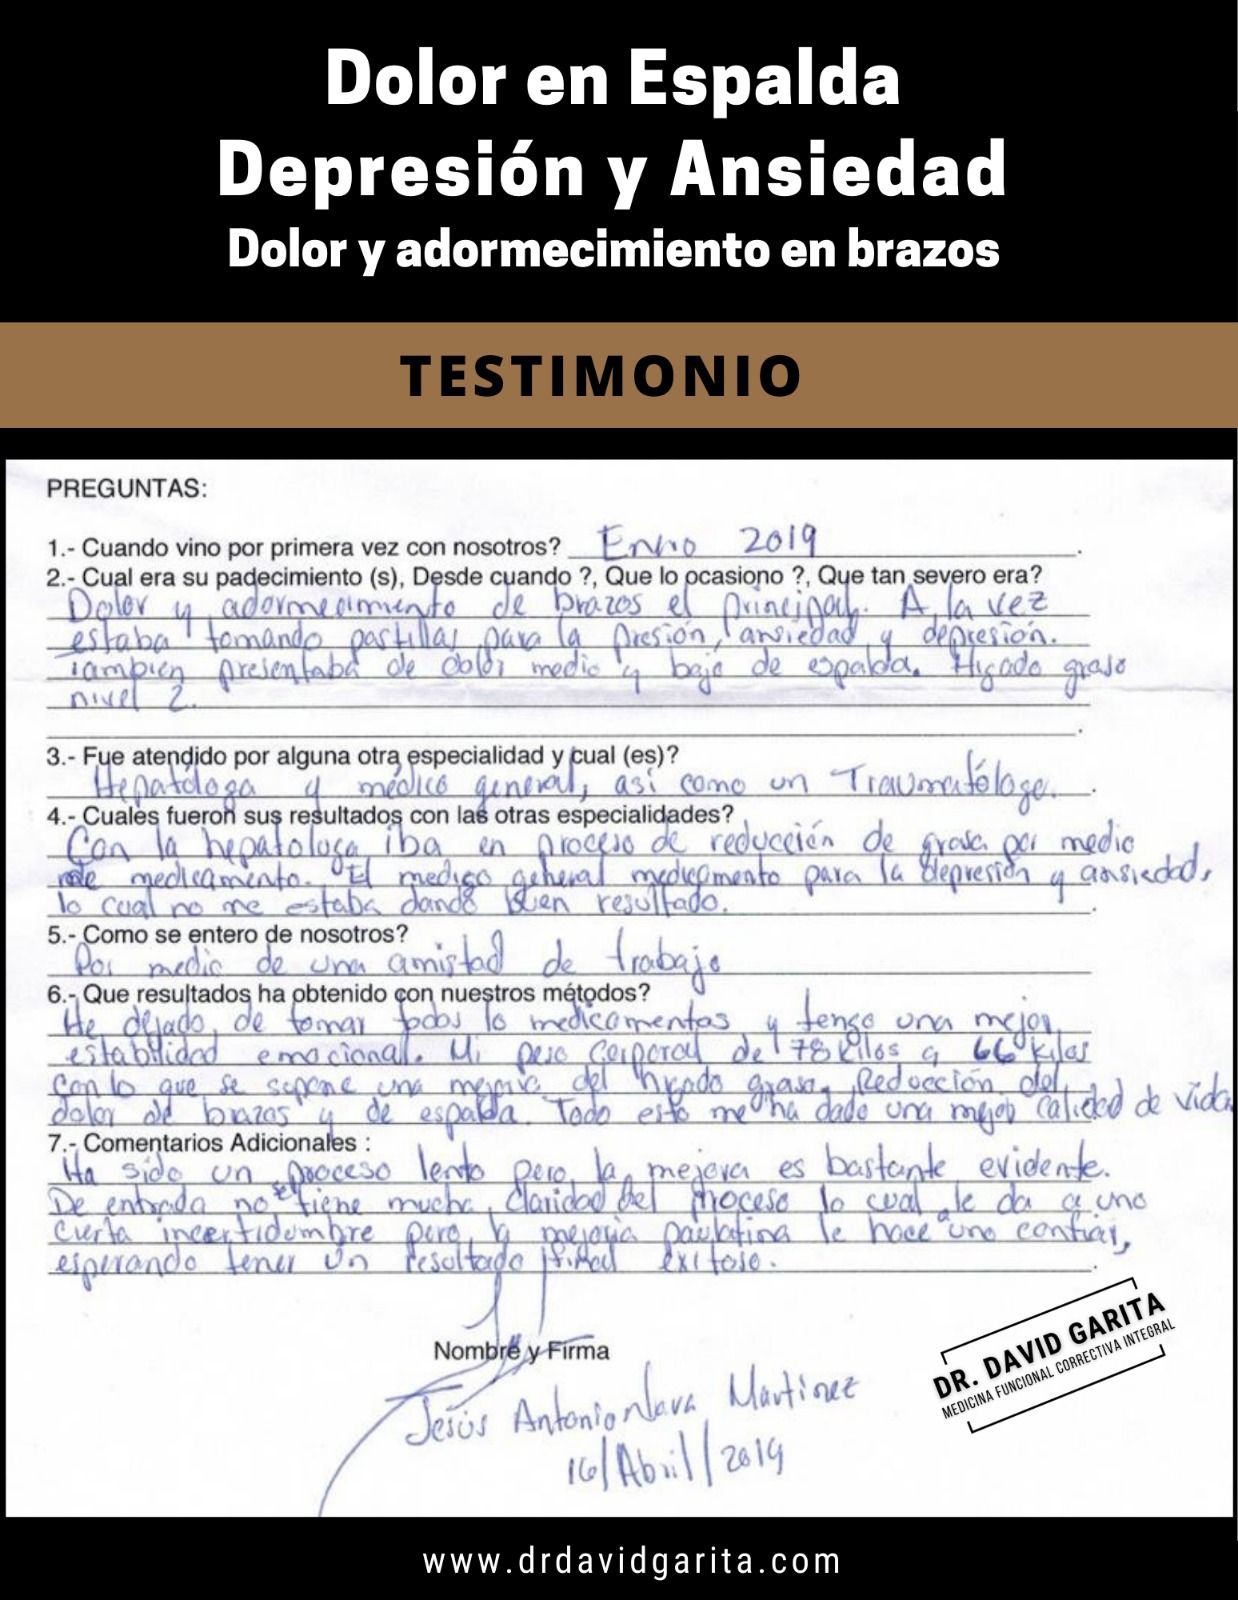 Dolor en Espalda
Depresión y Ansiedad
Dolor y adormecimiento en brazos
TESTIMONIO
PREGUNTAS:
1.- Cuando vino por primera vez con nosotros? Enero 2019
2.- Cual era su padecimiento (s), Desde cuando ?, Que lo ocasiono ?, Que tan severo era?
Dolor y adormecimiento de brazos el principal. A la vez
estaba tomando pastillas para la presión, ansiedad y depresión.
Tambien presentaba de dolor medio y bajo de espalda. Higado graso
nivel 2.
3.- Fue atendido por alguna otra especialidad y cual (es)?
Hepatóloga y médico general, así como un Traumatólogo.
4.- Cuales fueron sus resultados con las otras especialidades?
Con la hepatologa iba en proceso de reducción de grasa por medio
de medicamento. El medico general medicamento para la depresión y ansiedad,
lo cual no me estaba dando buen resultado.
5.- Como se entero de nosotros?
Por medio de una amistad de trabajo
6.- Que resultados ha obtenido con nuestros métodos?
He dejado de tomar todos lo medicamentos y tengo una mejor
estabilidad emocional. Mi peso corporal de 78 kilos a 66 kilos
con lo que se supone una mejoria del higado graso. Reducción del
dolor de brazos y de espalda. Todo esto me ha dado una mejor calidad de vida
7.- Comentarios Adicionales :
Ha sido un proceso lento pero la mejora es bastante evidente.
De entrada no se tiene mucha claridad del proceso lo cual le da a uno
cierta incertidumbre pero la mejoria paulatina le hace a uno confiar,
esperando tener un resultado final exitoso.
Nombre y Firma
Jesús Antonio Martinez
16/Abril/2019
DR. DAVID GARITA
MEDICINA FUNCIONAL CORRECTIVA INTEGRAL
www.drdavidgarita.com